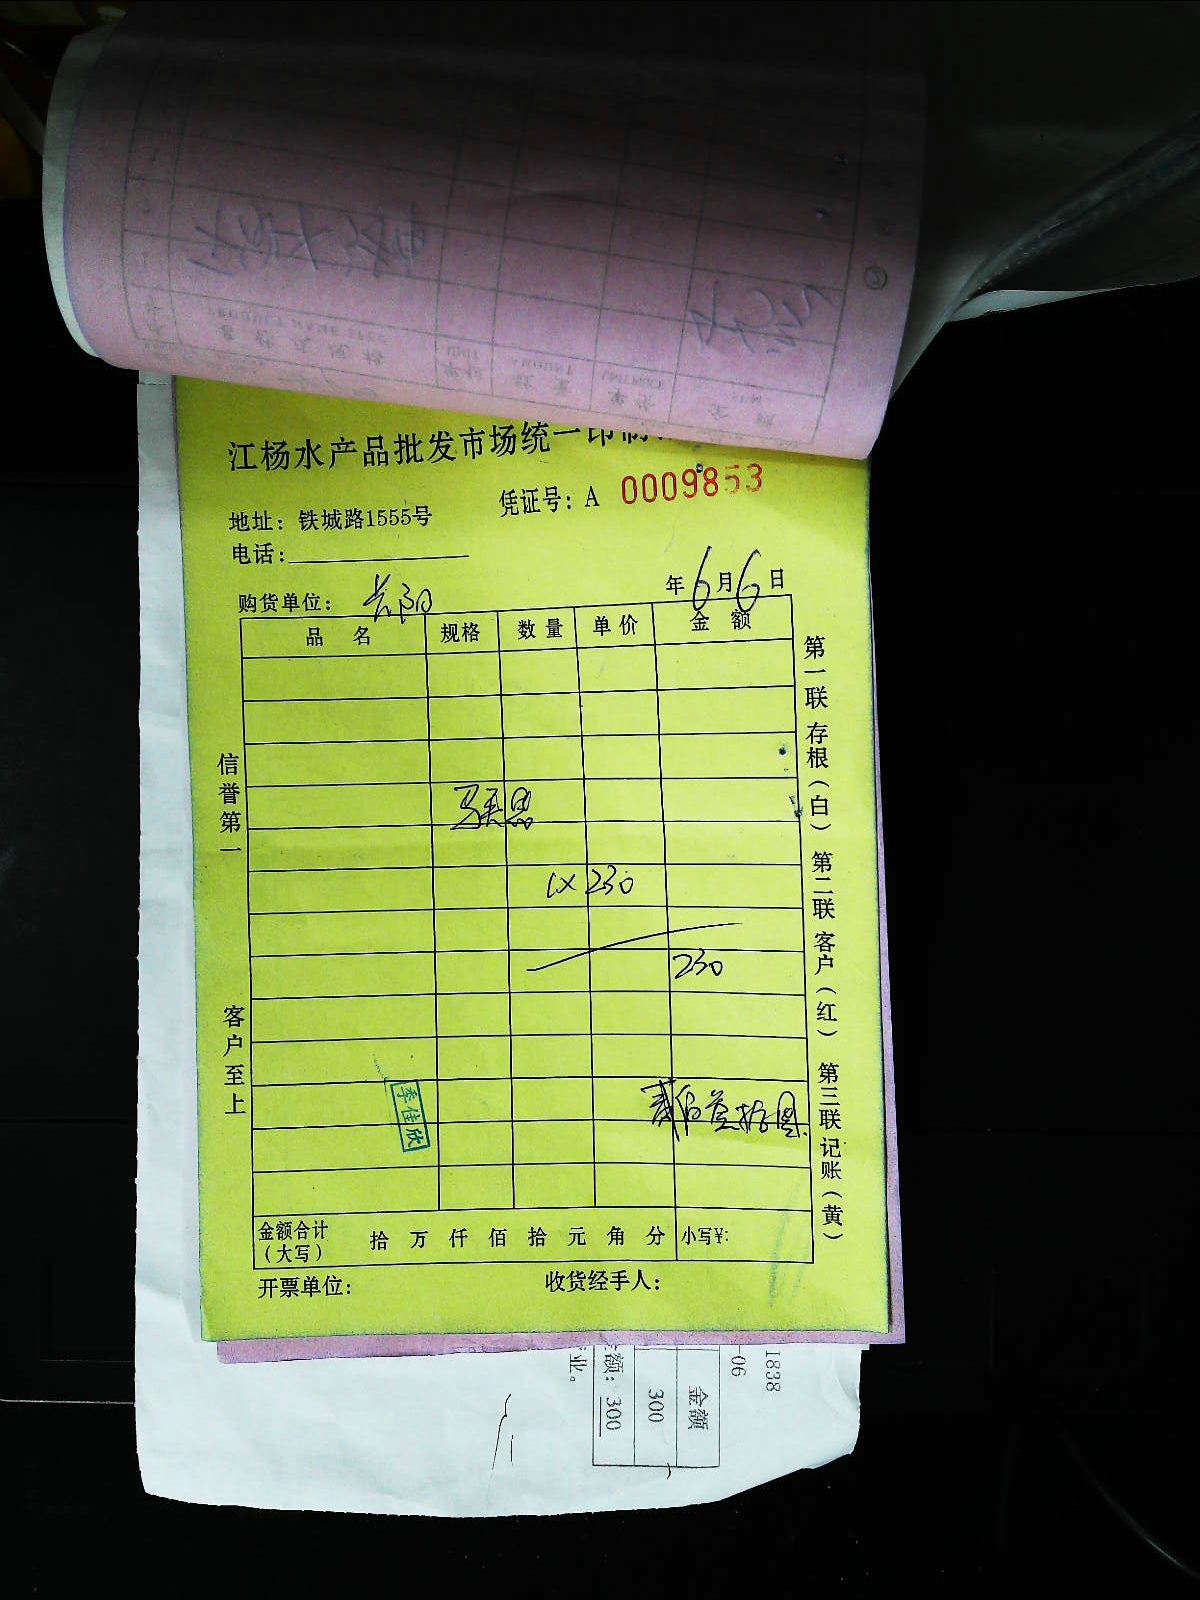 PRODUCT NAME SPEC
江杨水产品批发市场统一印制
凭证号：A 0009853
地址：铁城路1555号
电话：
购货单位：长阳
年6月6日
品名 规格 数量 单价 金额
1×230
230
贰佰叁拾圆
李佳欣
金额合计（大写） 拾 万 仟 佰 拾 元 角 分 小写¥:
开票单位： 收货经手人：
信誉第一 客户至上
第一联存根（白） 第二联客户（红） 第三联记账（黄）
1838
-06
金额
300
额：300
业。